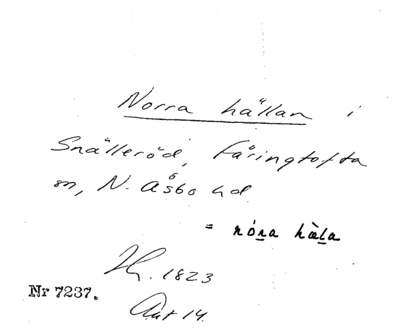 Norra hållan i
Snälleröd, Färingtofta
sn, N. Åsbo hd.
= nóra hàla
Nr 7237.
1823
Aut 14.